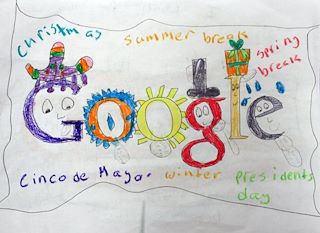 Christmas summer break spring
break
Google
Cinco de Mayo. winter presidents
day